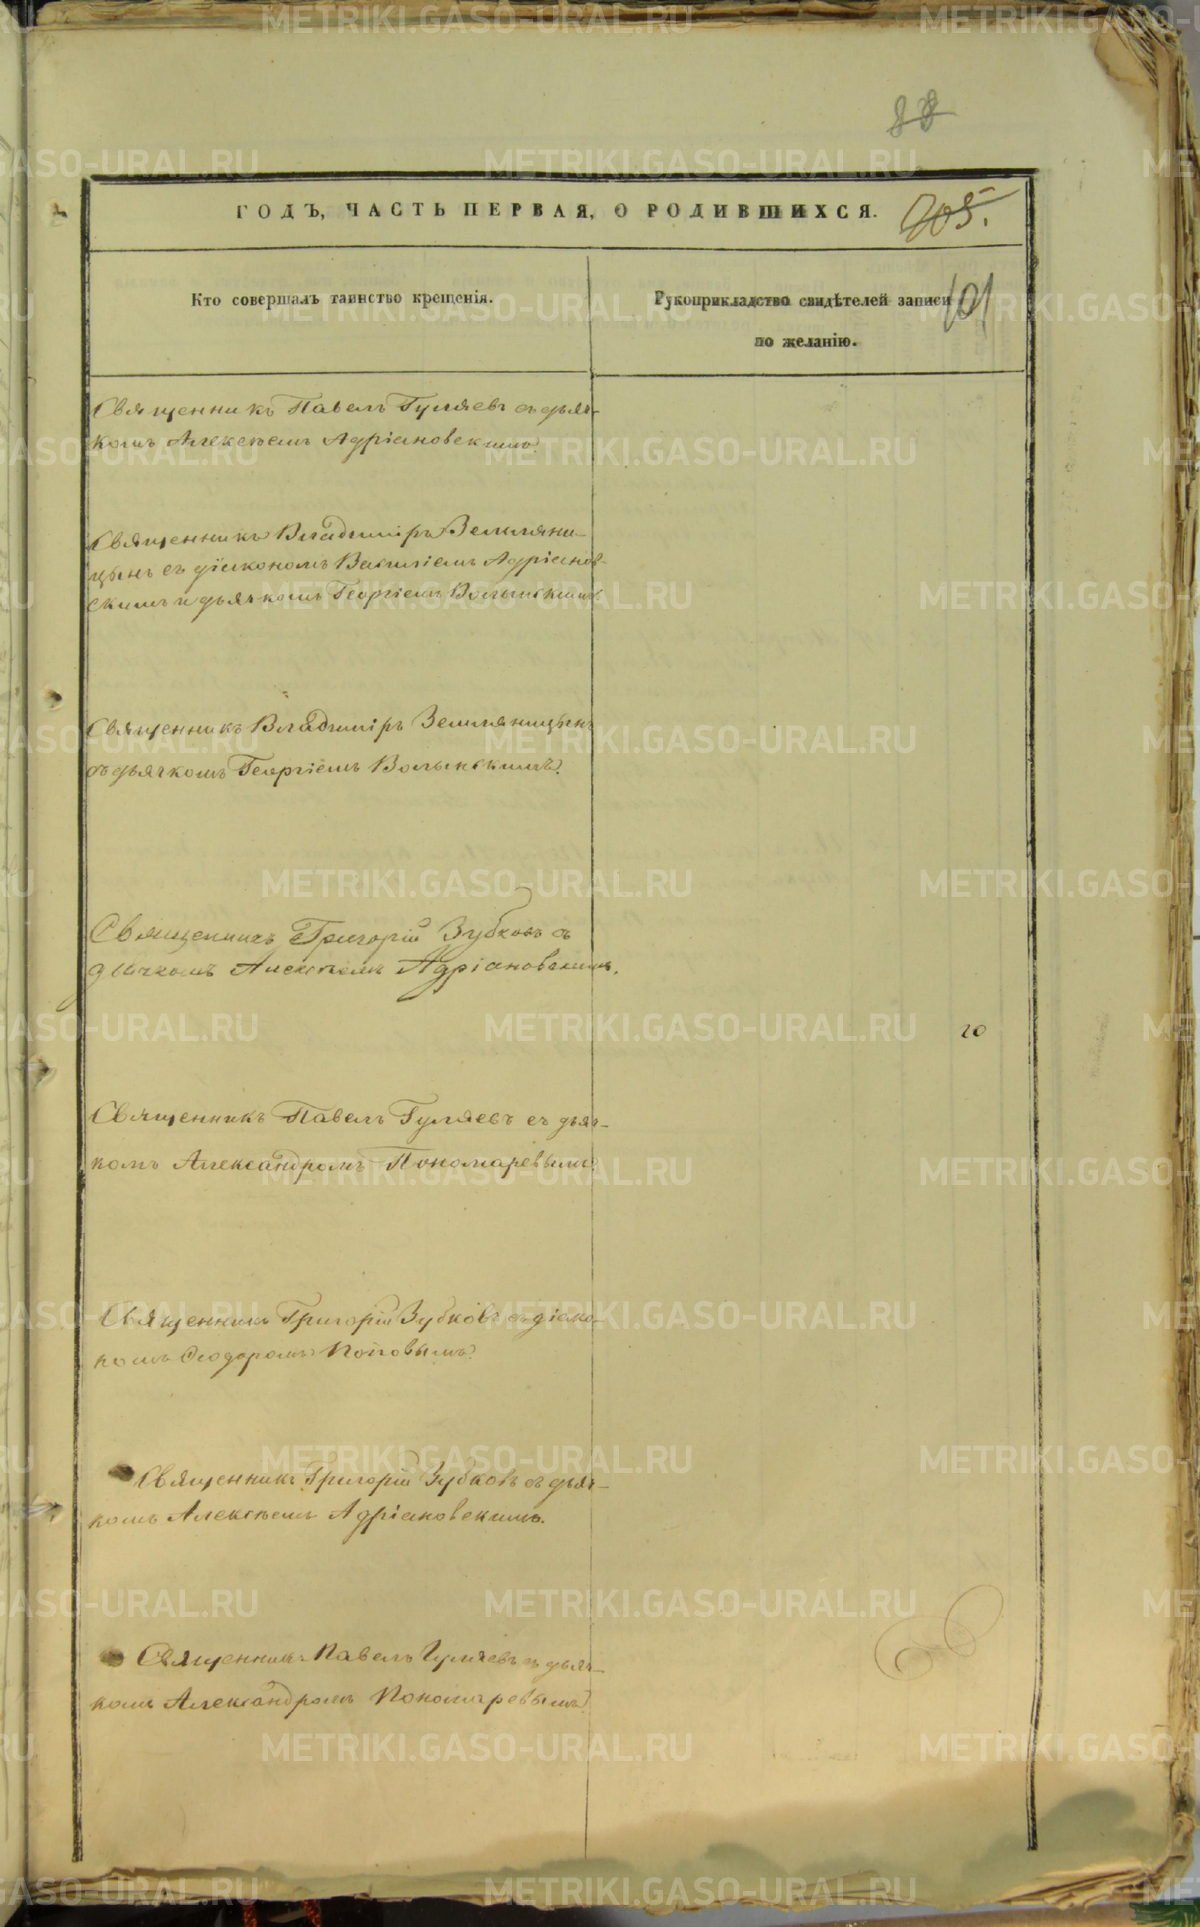 88
ГОДЪ, ЧАСТЬ ПЕРВАЯ, О РОДИВШИХСЯ.
205.
Кто совершалъ таинство крещенія.
Рукоприкладство свидѣтелей записи
101
по желанію.
Священникъ Павелъ Гуляевъ съ дьяч-
комъ Алексѣемъ Адріановскимъ.
Священникъ Владиміръ Земляни-
цынъ съ діакономъ Василіемъ Адріанов-
скимъ и дьячкомъ Георгіемъ Волынскимъ.
Священникъ Владиміръ Земляницынъ
съ дьячкомъ Георгіемъ Волынскимъ.
Священникъ Григорій Зубковъ съ
дьячкомъ Алексѣемъ Адріановскимъ.
20
Священникъ Павелъ Гуляевъ съ дьяч-
комъ Александромъ Пономаревымъ.
Священникъ Григорій Зубковъ съ діако-
номъ Ѳеодоромъ Поповымъ.
Священникъ Григорій Зубковъ съ дьяч-
комъ Алексѣемъ Адріановскимъ.
Священникъ Павелъ Гуляевъ съ дьяч-
комъ Александромъ Пономаревымъ.
METRIKI.GASO-URAL.RU